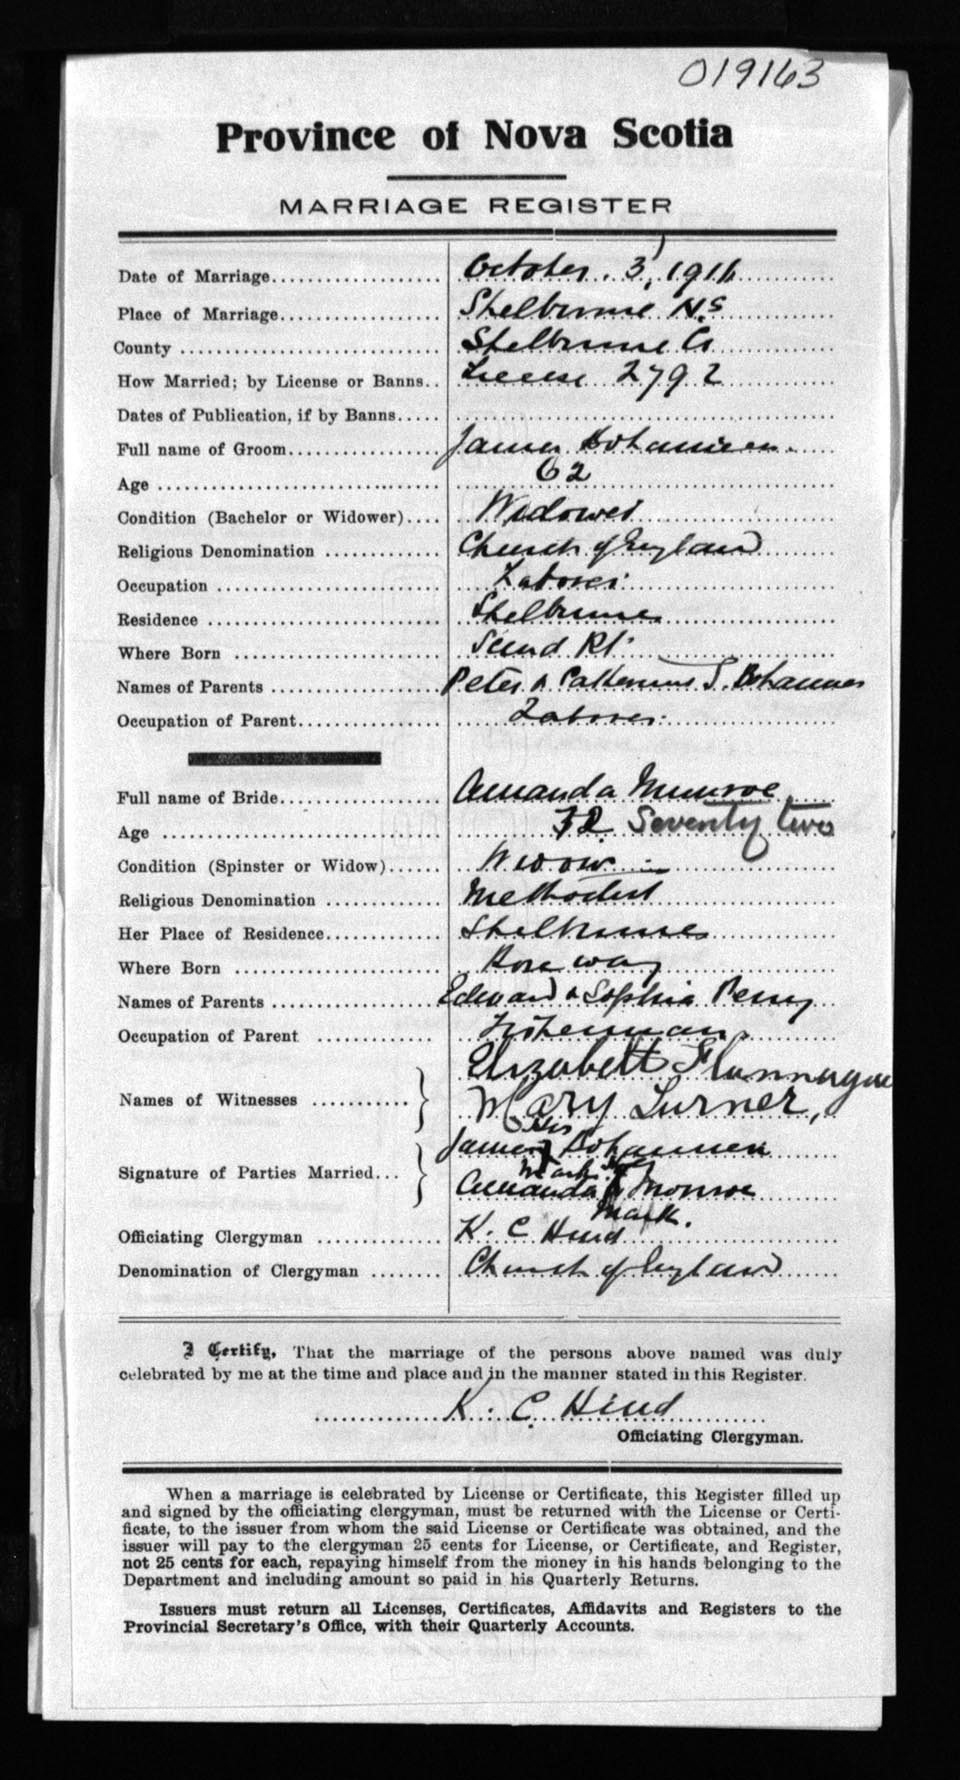 019163
Province of Nova Scotia
MARRIAGE REGISTER
Date of Marriage October. 3, 1916
Place of Marriage Shelburne N.S
County Shelburne Co
How Married; by License or Banns.. License 2792
Dates of Publication, if by Banns
Full name of Groom James Bohannen.
Age 62
Condition (Bachelor or Widower) Widower
Religious Denomination Church of England
Occupation Laborer
Residence Shelburne
Where Born Sand Pt
Names of Parents Peter & Catherine Bohannen
Occupation of Parent Laborer
Full name of Bride Amanda Munroe
Age 72 Seventy two
Condition (Spinster or Widow) Widow
Religious Denomination Methodist
Her Place of Residence Shelburne
Where Born Roseway
Names of Parents Edward & Sophia Perry
Occupation of Parent Fisherman
Names of Witnesses Elizabett Flannagan
Mary Turner,
His
Signature of Parties Married James Bohannen
Mark
Amanda Monroe
Mark.
Officiating Clergyman K. C Hind
Denomination of Clergyman Church of England
I Certify, That the marriage of the persons above named was duly
celebrated by me at the time and place and in the manner stated in this Register.
K. C. Hind
Officiating Clergyman.
When a marriage is celebrated by License or Certificate, this Register filled up
and signed by the officiating clergyman, must be returned with the License or Certi-
ficate, to the issuer from whom the said License or Certificate was obtained, and the
issuer will pay to the clergyman 25 cents for License, or Certificate, and Register,
not 25 cents for each, repaying himself from the money in his hands belonging to the
Department and including amount so paid in his Quarterly Returns.
Issuers must return all Licenses, Certificates, Affidavits and Registers to the
Provincial Secretary's Office, with their Quarterly Accounts.